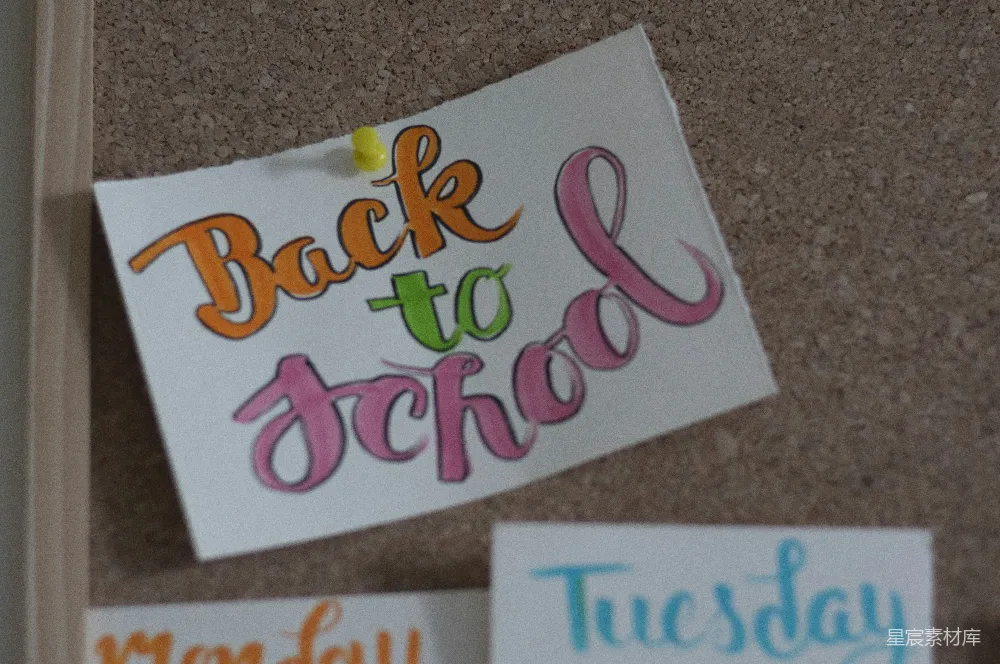 Back
to
School
monday
Tuesday
星宸素材库